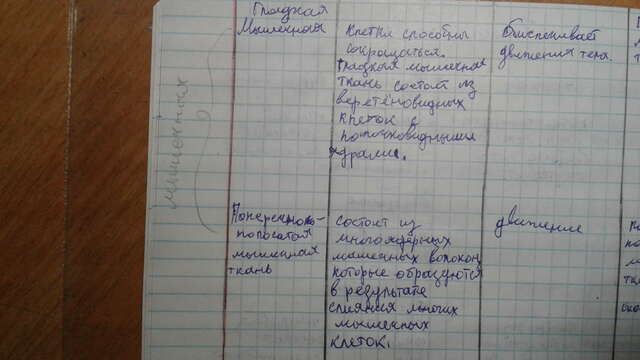 мышечная
Гладкая
Мышечная
клетки способны
сокращаться.
Гладкая мышечная
ткань состоит из
веретеновидных
клеток с
палочковидными
ядрами.
Обеспечивает
движения тела.
Поперечно-
полосатая
мышечная
ткань
состоит из
многоядерных
мышечных волокон,
которые образуются
в результате
слияния многих
мышечных
клеток.
движение